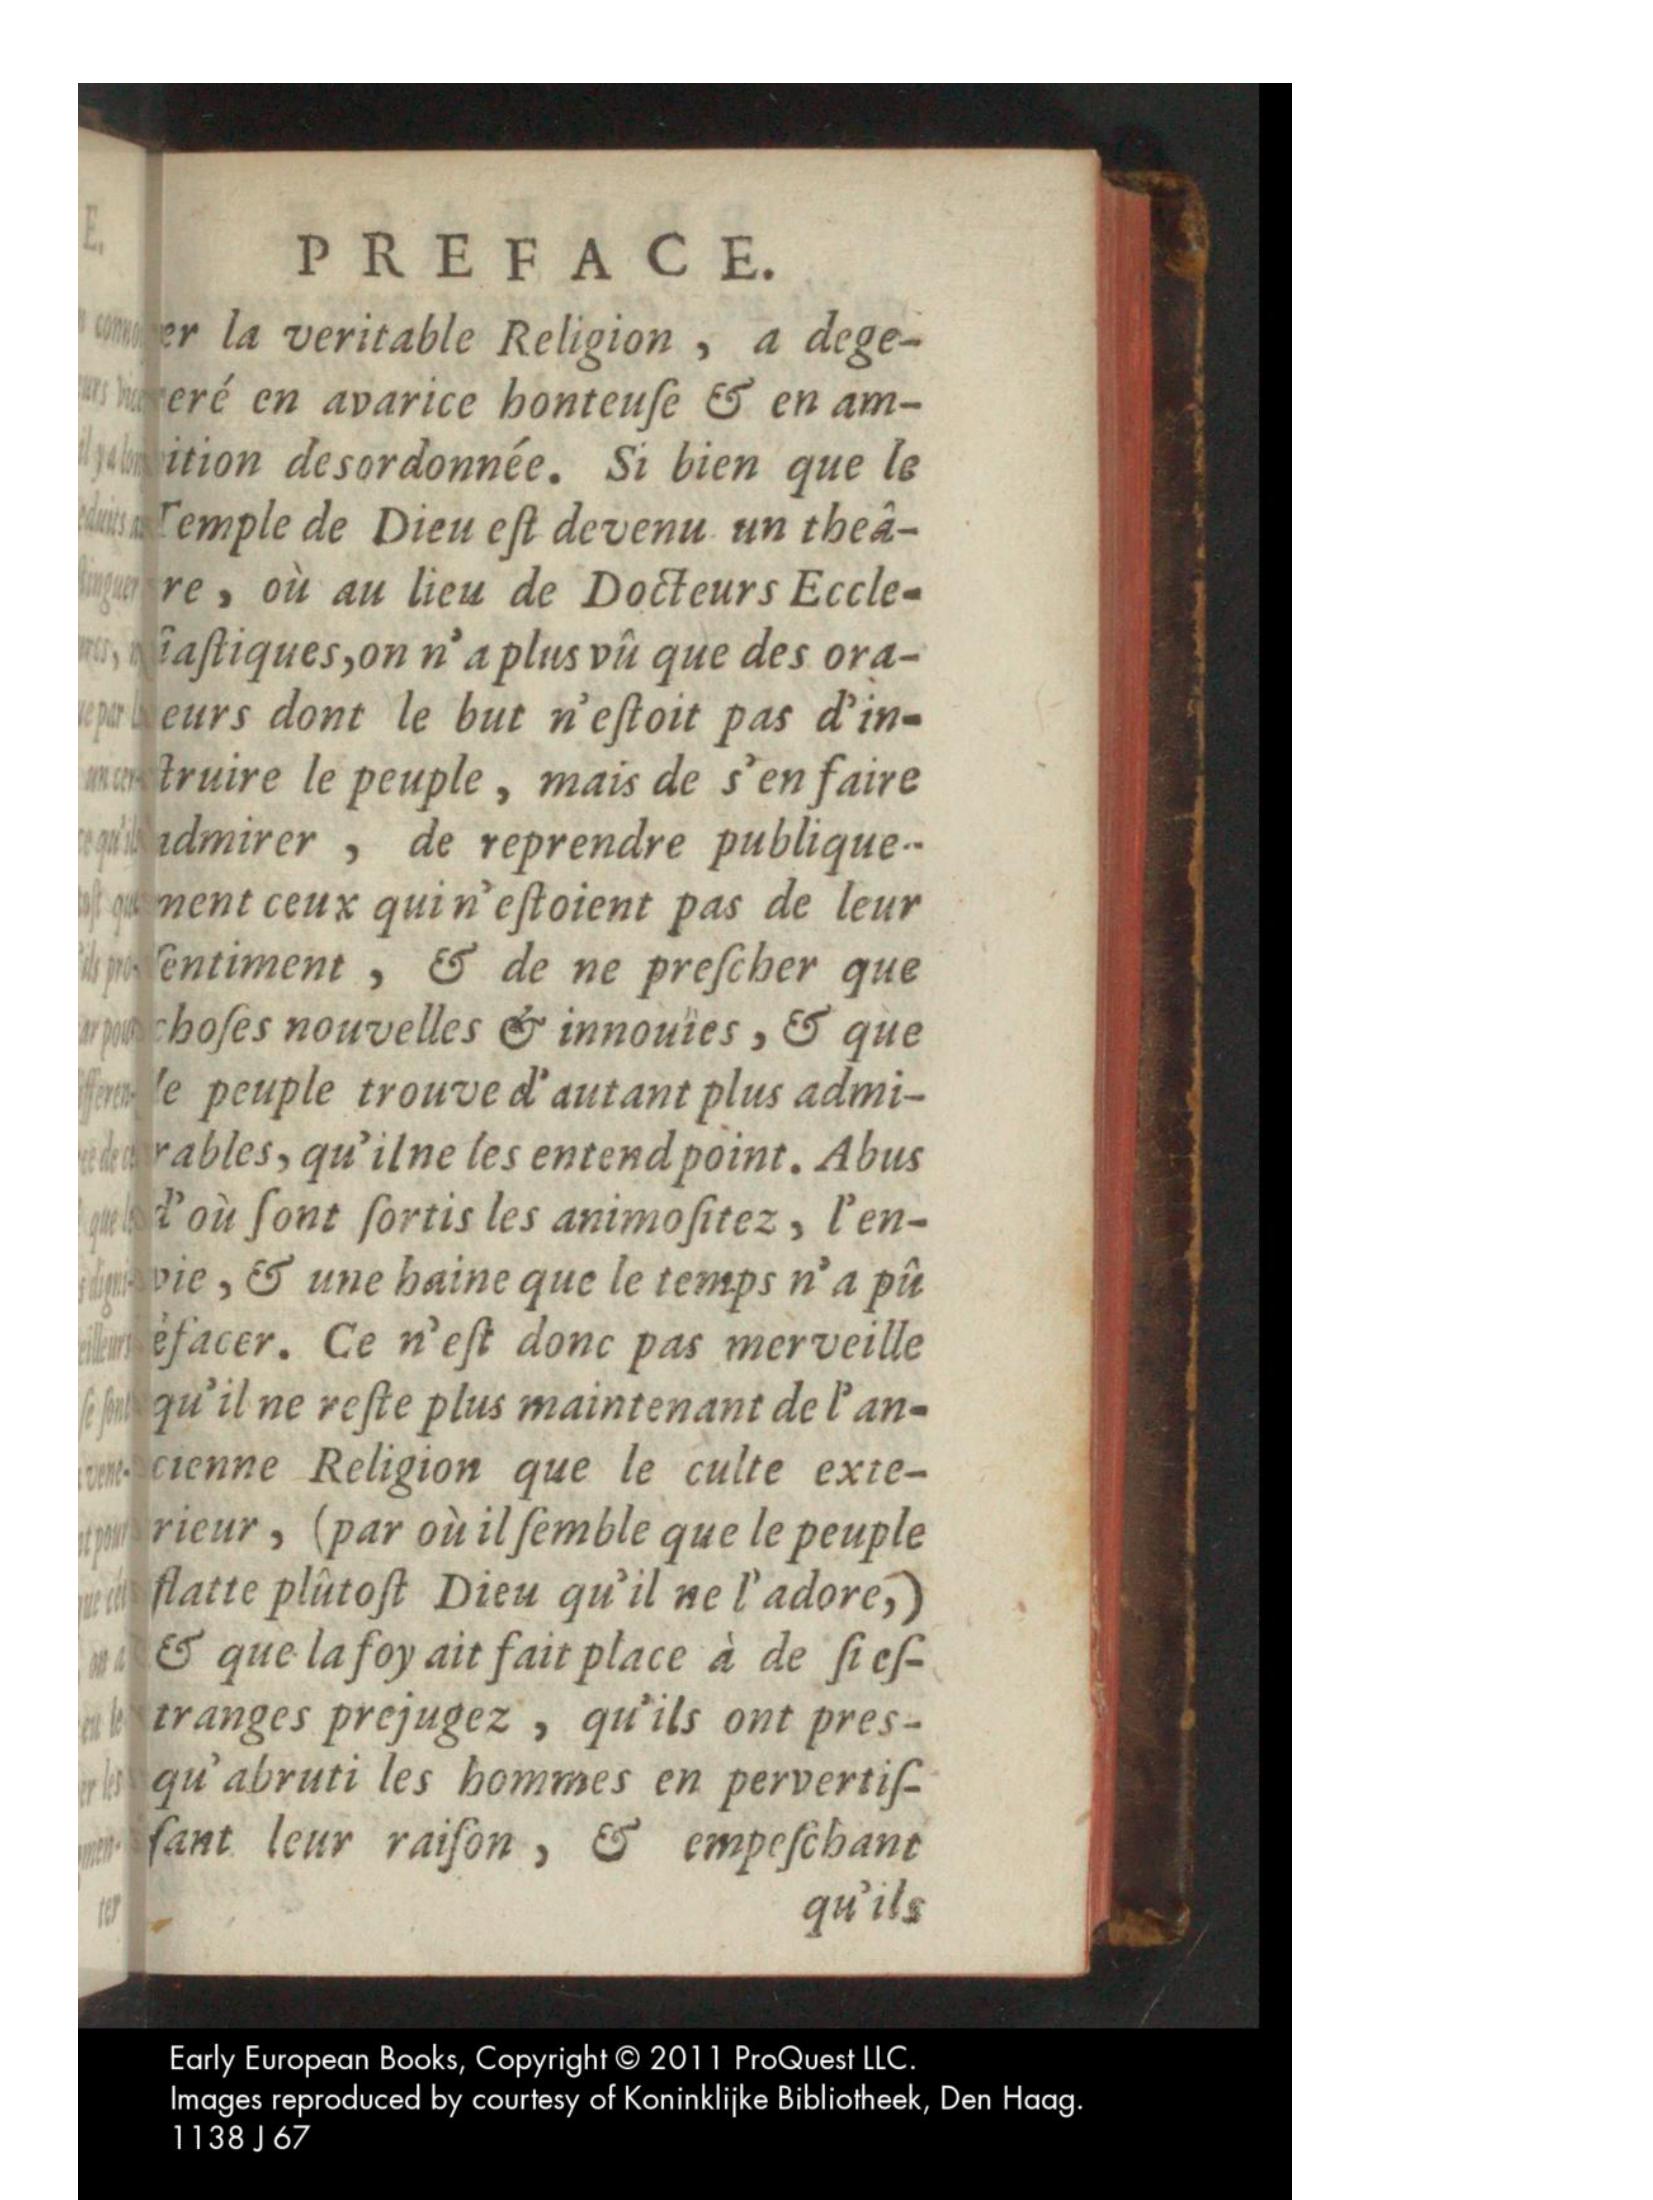 PREFACE.
er la veritable Religion, a dege-
eré en avarice honteuſe & en am-
ition desordonnée. Si bien que le
Temple de Dieu eſt devenu un theâ-
re, où au lieu de Docteurs Eccle-
iaſtiques, on n'a plus vû que des ora-
eurs dont le but n'eſtoit pas d'in-
truire le peuple, mais de s'en faire
admirer, de reprendre publique-
ment ceux qui n'eſtoient pas de leur
ſentiment, & de ne preſcher que
choſes nouvelles & innouïes, & que
le peuple trouve d'autant plus admi-
rables, qu'il ne les entend point. Abus
d'où ſont ſortis les animoſitez, l'en-
vie, & une haine que le temps n'a pû
éfacer. Ce n'eſt donc pas merveille
qu'il ne reſte plus maintenant de l'an-
cienne Religion que le culte exte-
rieur, (par où il ſemble que le peuple
flatte plûtoſt Dieu qu'il ne l'adore,)
& que la foy ait fait place à de ſi eſ-
tranges prejugez, qu'ils ont pres-
qu'abruti les hommes en pervertiſ-
ſant leur raiſon, & empeſchant
qu'ils
Early European Books, Copyright © 2011 ProQuest LLC.
Images reproduced by courtesy of Koninklijke Bibliotheek, Den Haag.
1138 J 67